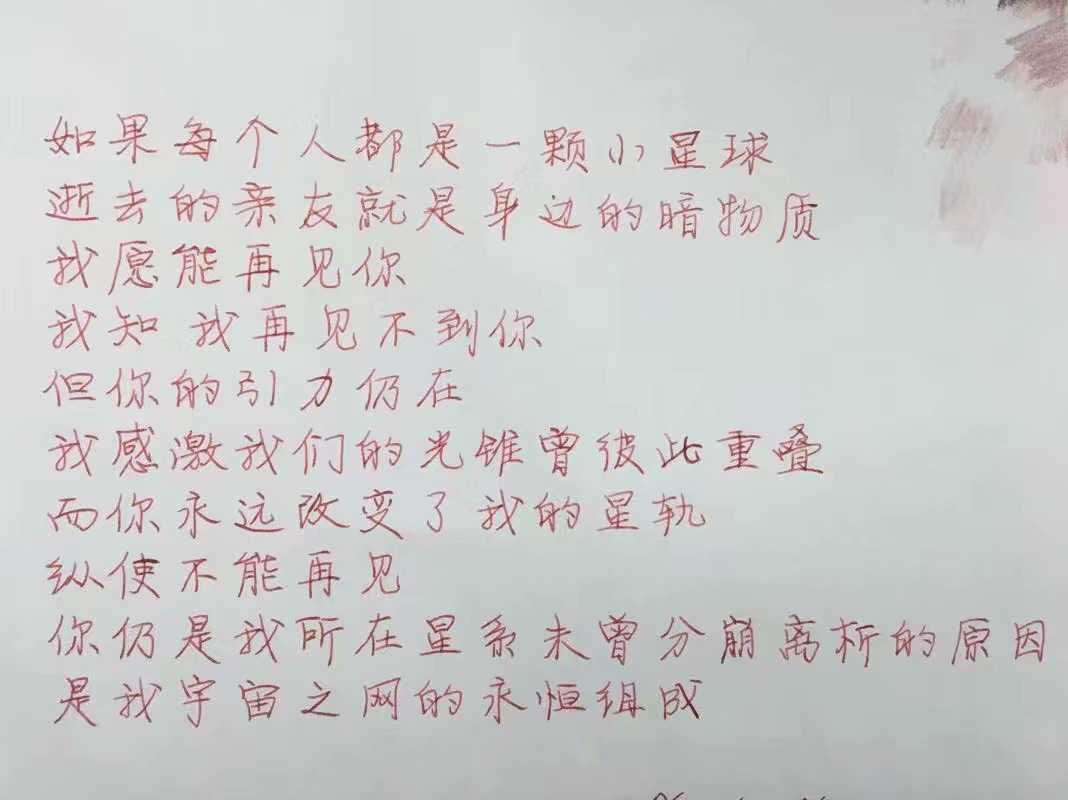 如果每个人都是一颗小星球
逝去的亲友就是身边的暗物质
我愿能再见你
我知 我再见不到你
但你的引力仍在
我感激我们的光锥曾彼此重叠
而你永远改变了我的星轨
纵使不能再见
你仍是我所在星系未曾分崩离析的原因
是我宇宙之网的永恒组成